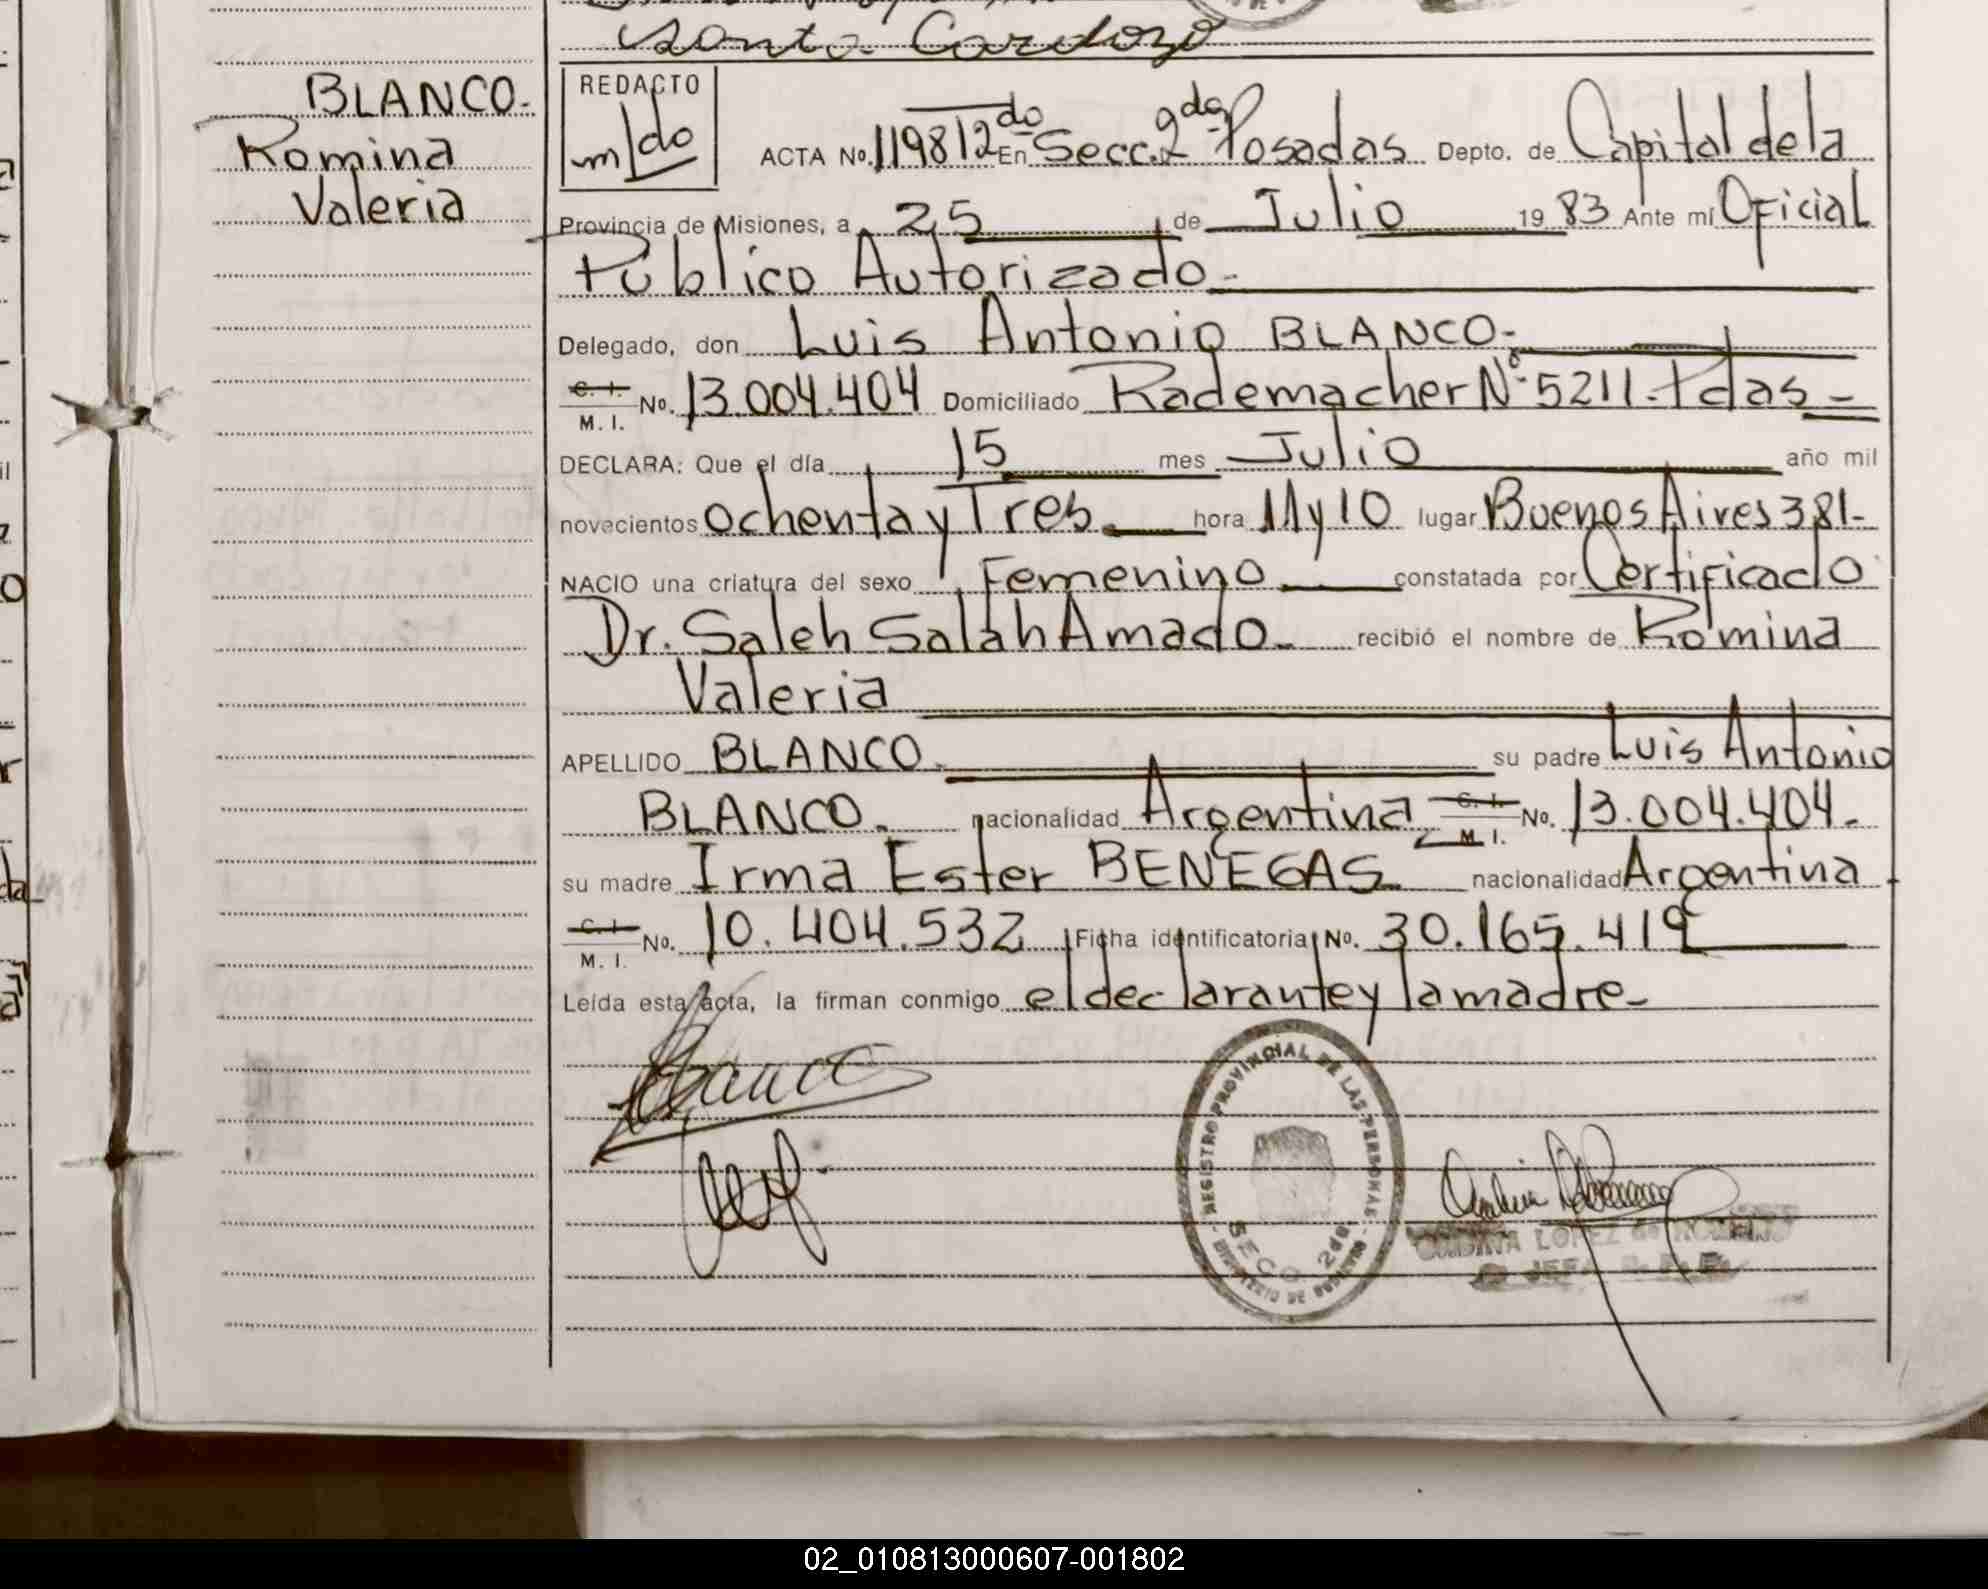 Santa Cardozo
BLANCO-
Romina
Valeria
REDACTO
m/do
ACTA No. 1198 T2do En Secc. 2da Posadas Depto. de Capital de la
Provincia de Misiones, a 25 de Julio 19 83 Ante mí Oficial
Público Autorizado-
Delegado, don Luis Antonio BLANCO-
C. I. M. I. No. 13.004.404 Domiciliado Rademacher Nº 5211-Pdas-
DECLARA: Que el día 15 mes Julio año mil
novecientos ochenta y Tres. hora 11 y 10 lugar Buenos Aires 381-
NACIO una criatura del sexo Femenino constatada por Certificado
Dr. Saleh Salah Amado- recibió el nombre de Romina
Valeria
APELLIDO BLANCO- su padre Luis Antonio
BLANCO. nacionalidad Argentina C. I. M. I. No. 13.004.404-
su madre Irma Ester BENEGAS nacionalidad Argentina
C. I. M. I. No. 10.404.532 Ficha identificatoria No. 30.165.419
Leída esta acta, la firman conmigo el declarante y la madre-
Blanco
REGISTRO PROVINCIAL DE LAS PERSONAS
SECC 2da
MINISTERIO DE GOBIERNO
LOPEZ de ROMERO
JEFA
02_010813000607-001802